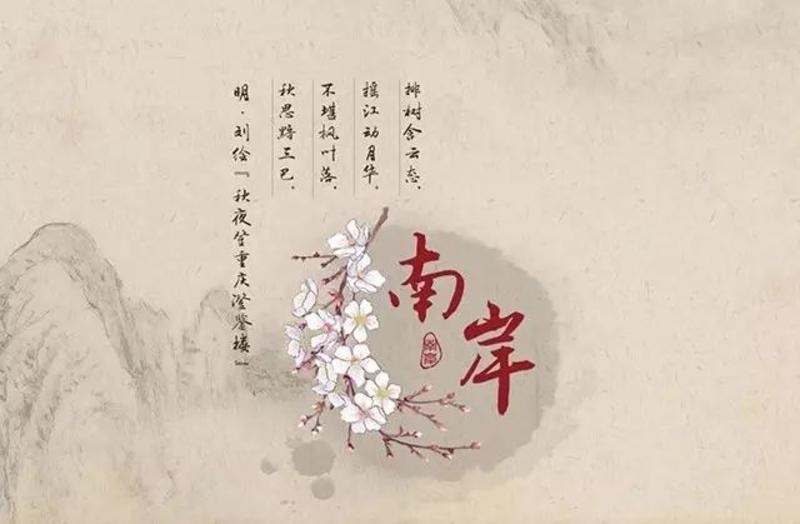 排树含云态，
摇江动月华。
不堪枫叶落，
秋思黯三巴。
明·刘绘『秋夜登重庆澄鉴楼』
南岸
南岸